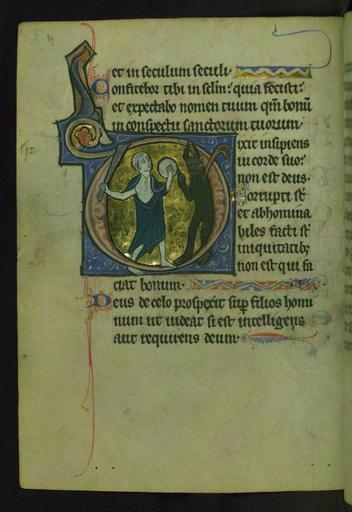 et in seculum seculi.
Confitebor tibi in seculum: quia fecisti:
et expectabo nomen tuum qm bonū
in conspectu sanctorum tuorum.
Dixit insipiens
in corde suo:
non est deus.
Corrupti st̄
et abhomina
biles facti st̄
in iniquitatibȝ
non est qui fa
ciat bonum.
Deus de celo prospexit sup filios homi
num ut uideat si est intelligens
aut requirens deum.